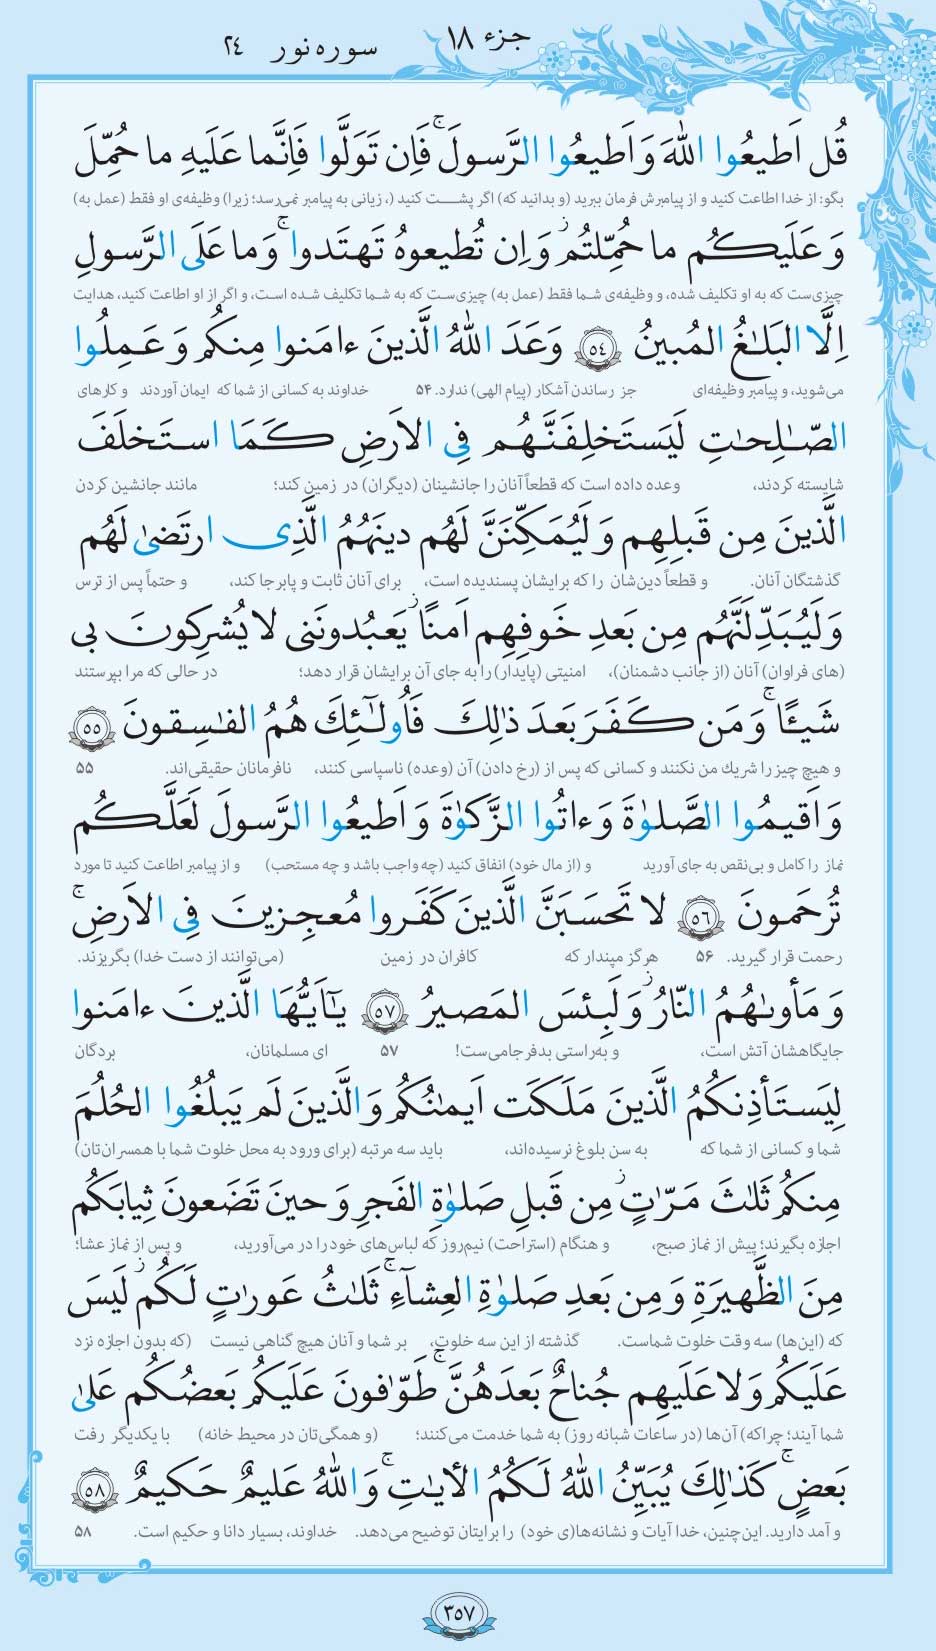 جزء ۱۸
سوره نور ۲۴
قُل اَطیعُوا اللّٰهَ وَ اَطیعُوا الرَّسولَ ۚ فَاِن تَوَلَّوا فَاِنَّما عَلَیهِ ما حُمِّلَ
بگو: از خدا اطاعت کنید و از پیامبرش فرمان ببرید (و بدانید که) اگر پشت کنید (، زیانی به پیامبر نمی‌رسد؛ زیرا) وظیفه‌ی او فقط (عمل به)
وَ عَلَیکُم ما حُمِّلتُم ۖ وَ اِن تُطیعوهُ تَهتَدوا ۚ وَ ما عَلَی الرَّسولِ
چیزی‌ست که به او تکلیف شده، و وظیفه‌ی شما فقط (عمل به) چیزی‌ست که به شما تکلیف شده است، و اگر از او اطاعت کنید، هدایت
اِلَّا البَلـٰغُ المُبینُ ﴿٥٤﴾ وَعَدَ اللّٰهُ الَّذینَ ءامَنوا مِنکُم وَ عَمِلُوا
می‌شوید، و پیامبر وظیفه‌ای جز رساندن آشکار (پیام الهی) ندارد. ۵۴ خداوند به کسانی از شما که ایمان آوردند و کارهای
الصّـٰلِحـٰتِ لَیَستَخلِفَنَّهُم فِی الاَرضِ کَمَا استَخلَفَ
شایسته کردند، وعده داده است که قطعاً آنان را جانشینان (دیگران) در زمین کند؛ مانند جانشین کردن
الَّذینَ مِن قَبلِهِم وَ لَیُمَکِّنَنَّ لَهُم دینَهُمُ الَّذِی ارتَضیٰ لَهُم
گذشتگان آنان. و قطعاً دین‌شان را که برایشان پسندیده است، برای آنان ثابت و پابرجا کند، و حتماً پس از ترس
وَ لَیُبَدِّلَنَّهُم مِن بَعدِ خَوفِهِم اَمنًا ۚ یَعبُدونَنی لا یُشرِکونَ بی
(های فراوان) آنان (از جانب دشمنان)، امنیتی (پایدار) را به جای آن برایشان قرار دهد؛ در حالی که مرا بپرستند
شَیـًٔا ۚ وَ مَن کَفَرَ بَعدَ ذٰلِکَ فَاُولـٰٓئِکَ هُمُ الفـٰسِقونَ ﴿٥٥﴾
و هیچ چیز را شریک من نکنند و کسانی که پس از (رخ دادن) آن (وعده) ناسپاسی کنند، نافرمانان حقیقی‌اند. ۵۵
وَ اَقیمُوا الصَّلوٰةَ وَ ءاتُوا الزَّکوٰةَ وَ اَطیعُوا الرَّسولَ لَعَلَّکُم
نماز را کامل و بی‌نقص به جای آورید و (از مال خود) انفاق کنید (چه واجب باشد و چه مستحب) و از پیامبر اطاعت کنید تا مورد
تُرحَمونَ ﴿٥٦﴾ لا تَحسَبَنَّ الَّذینَ کَفَروا مُعجِزینَ فِی الاَرضِ ۚ
رحمت قرار گیرید. ۵۶ هرگز مپندار که کافران در زمین (می‌توانند از دست خدا) بگریزند.
وَ مَأوىٰهُمُ النّارُ ۖ وَ لَبِئسَ المَصیرُ ﴿٥٧﴾ یـٰٓاَیُّهَا الَّذینَ ءامَنوا
جایگاهشان آتش است، و به‌راستی بدفرجامی‌ست! ۵۷ ای مسلمانان، بردگان
لِیَستَأذِنکُمُ الَّذینَ مَلَکَت اَیمـٰنُکُم وَ الَّذینَ لَم یَبلُغُوا الحُلُمَ
شما و کسانی از شما که به سن بلوغ نرسیده‌اند، باید سه مرتبه (برای ورود به محل خلوت شما با همسران‌تان)
مِنکُم ثَلـٰثَ مَرّٰتٍ ۚ مِن قَبلِ صَلوٰةِ الفَجرِ وَ حینَ تَضَعونَ ثیابَکُم
اجازه بگیرند؛ پیش از نماز صبح، و هنگام (استراحت) نیم‌روز که لباس‌های خود را در می‌آورید، و پس از نماز عشا؛
مِنَ الظَّهیرَةِ وَ مِن بَعدِ صَلوٰةِ العِشآءِ ۚ ثَلـٰثُ عَورٰتٍ لَکُم ۚ لَیسَ
که (این‌ها) سه وقت خلوت شماست. گذشته از این سه خلوت، بر شما و آنان هیچ گناهی نیست (که بدون اجازه نزد
عَلَیکُم وَ لا عَلَیهِم جُناحٌ بَعدَهُنَّ ۚ طَوّٰفونَ عَلَیکُم بَعضُکُم عَلیٰ
شما آیند؛ چراکه) آن‌ها (در ساعات شبانه روز) به شما خدمت می‌کنند؛ (و همگی‌تان در محیط خانه) با یکدیگر رفت
بَعضٍ ۚ کَذٰلِکَ یُبَیِّنُ اللّٰهُ لَکُمُ الـٔایـٰتِ ۗ وَ اللّٰهُ عَلیمٌ حَکیمٌ ﴿٥٨﴾
و آمد دارید. این‌چنین، خدا آیات و نشانه‌ها(ی خود) را برایتان توضیح می‌دهد. خداوند، بسیار دانا و حکیم است. ۵۸
۳۵۷